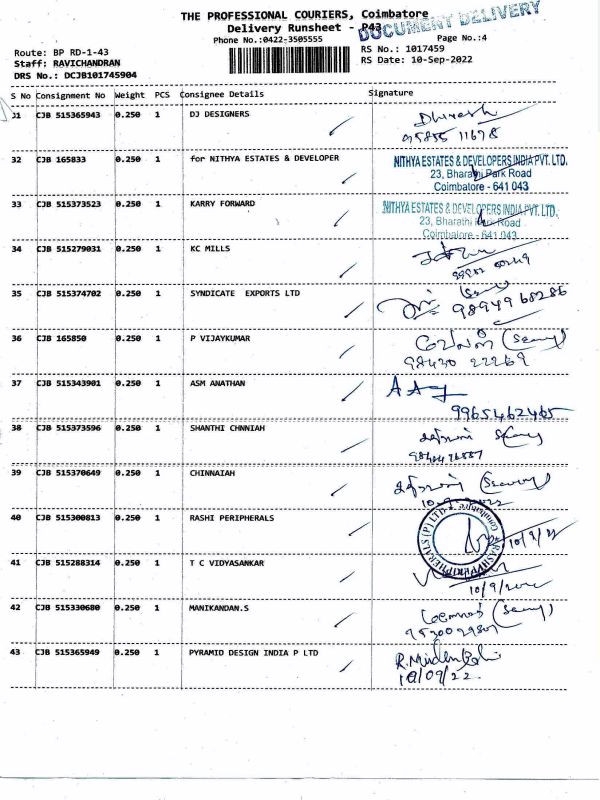 THE PROFESSIONAL COURIERS, Coimbatore
Delivery Runsheet - P43
DOCUMENT DELIVERY
Phone No.:0422-3505555
Page No.:4
Route: BP RD-1-43
RS No.: 1017459
Staff: RAVICHANDRAN
RS Date: 10-Sep-2022
DRS No.: DCJB101745904
S No Consignment No Weight PCS Consignee Details Signature
31 CJB 515365943 0.250 1 DJ DESIGNERS
Dhinesh
32 CJB 165833 0.250 1 for NITHYA ESTATES & DEVELOPER
NITHYA ESTATES & DEVELOPERS INDIA PVT. LTD.
23, Bharathi Park Road
Coimbatore - 641 043
33 CJB 515373523 0.250 1 KARRY FORWARD
NITHYA ESTATES & DEVELOPERS INDIA PVT. LTD.
23, Bharathi Park Road
Coimbatore - 641 043
34 CJB 515279031 0.250 1 KC MILLS
35 CJB 515374702 0.250 1 SYNDICATE EXPORTS LTD
9894968286
36 CJB 165850 0.250 1 P VIJAYKUMAR
98430 22269
37 CJB 515343901 0.250 1 ASM ANATHAN
9965462465
38 CJB 515373596 0.250 1 SHANTHI CHNNIAH
39 CJB 515370649 0.250 1 CHINNAIAH
40 CJB 515300813 0.250 1 RASHI PERIPHERALS
RASHI PERIPHERALS (P) LTD
Coimbatore
10/9/22
41 CJB 515288314 0.250 1 T C VIDYASANKAR
42 CJB 515330680 0.250 1 MANIKANDAN.S
43 CJB 515365949 0.250 1 PYRAMID DESIGN INDIA P LTD
10/09/22.